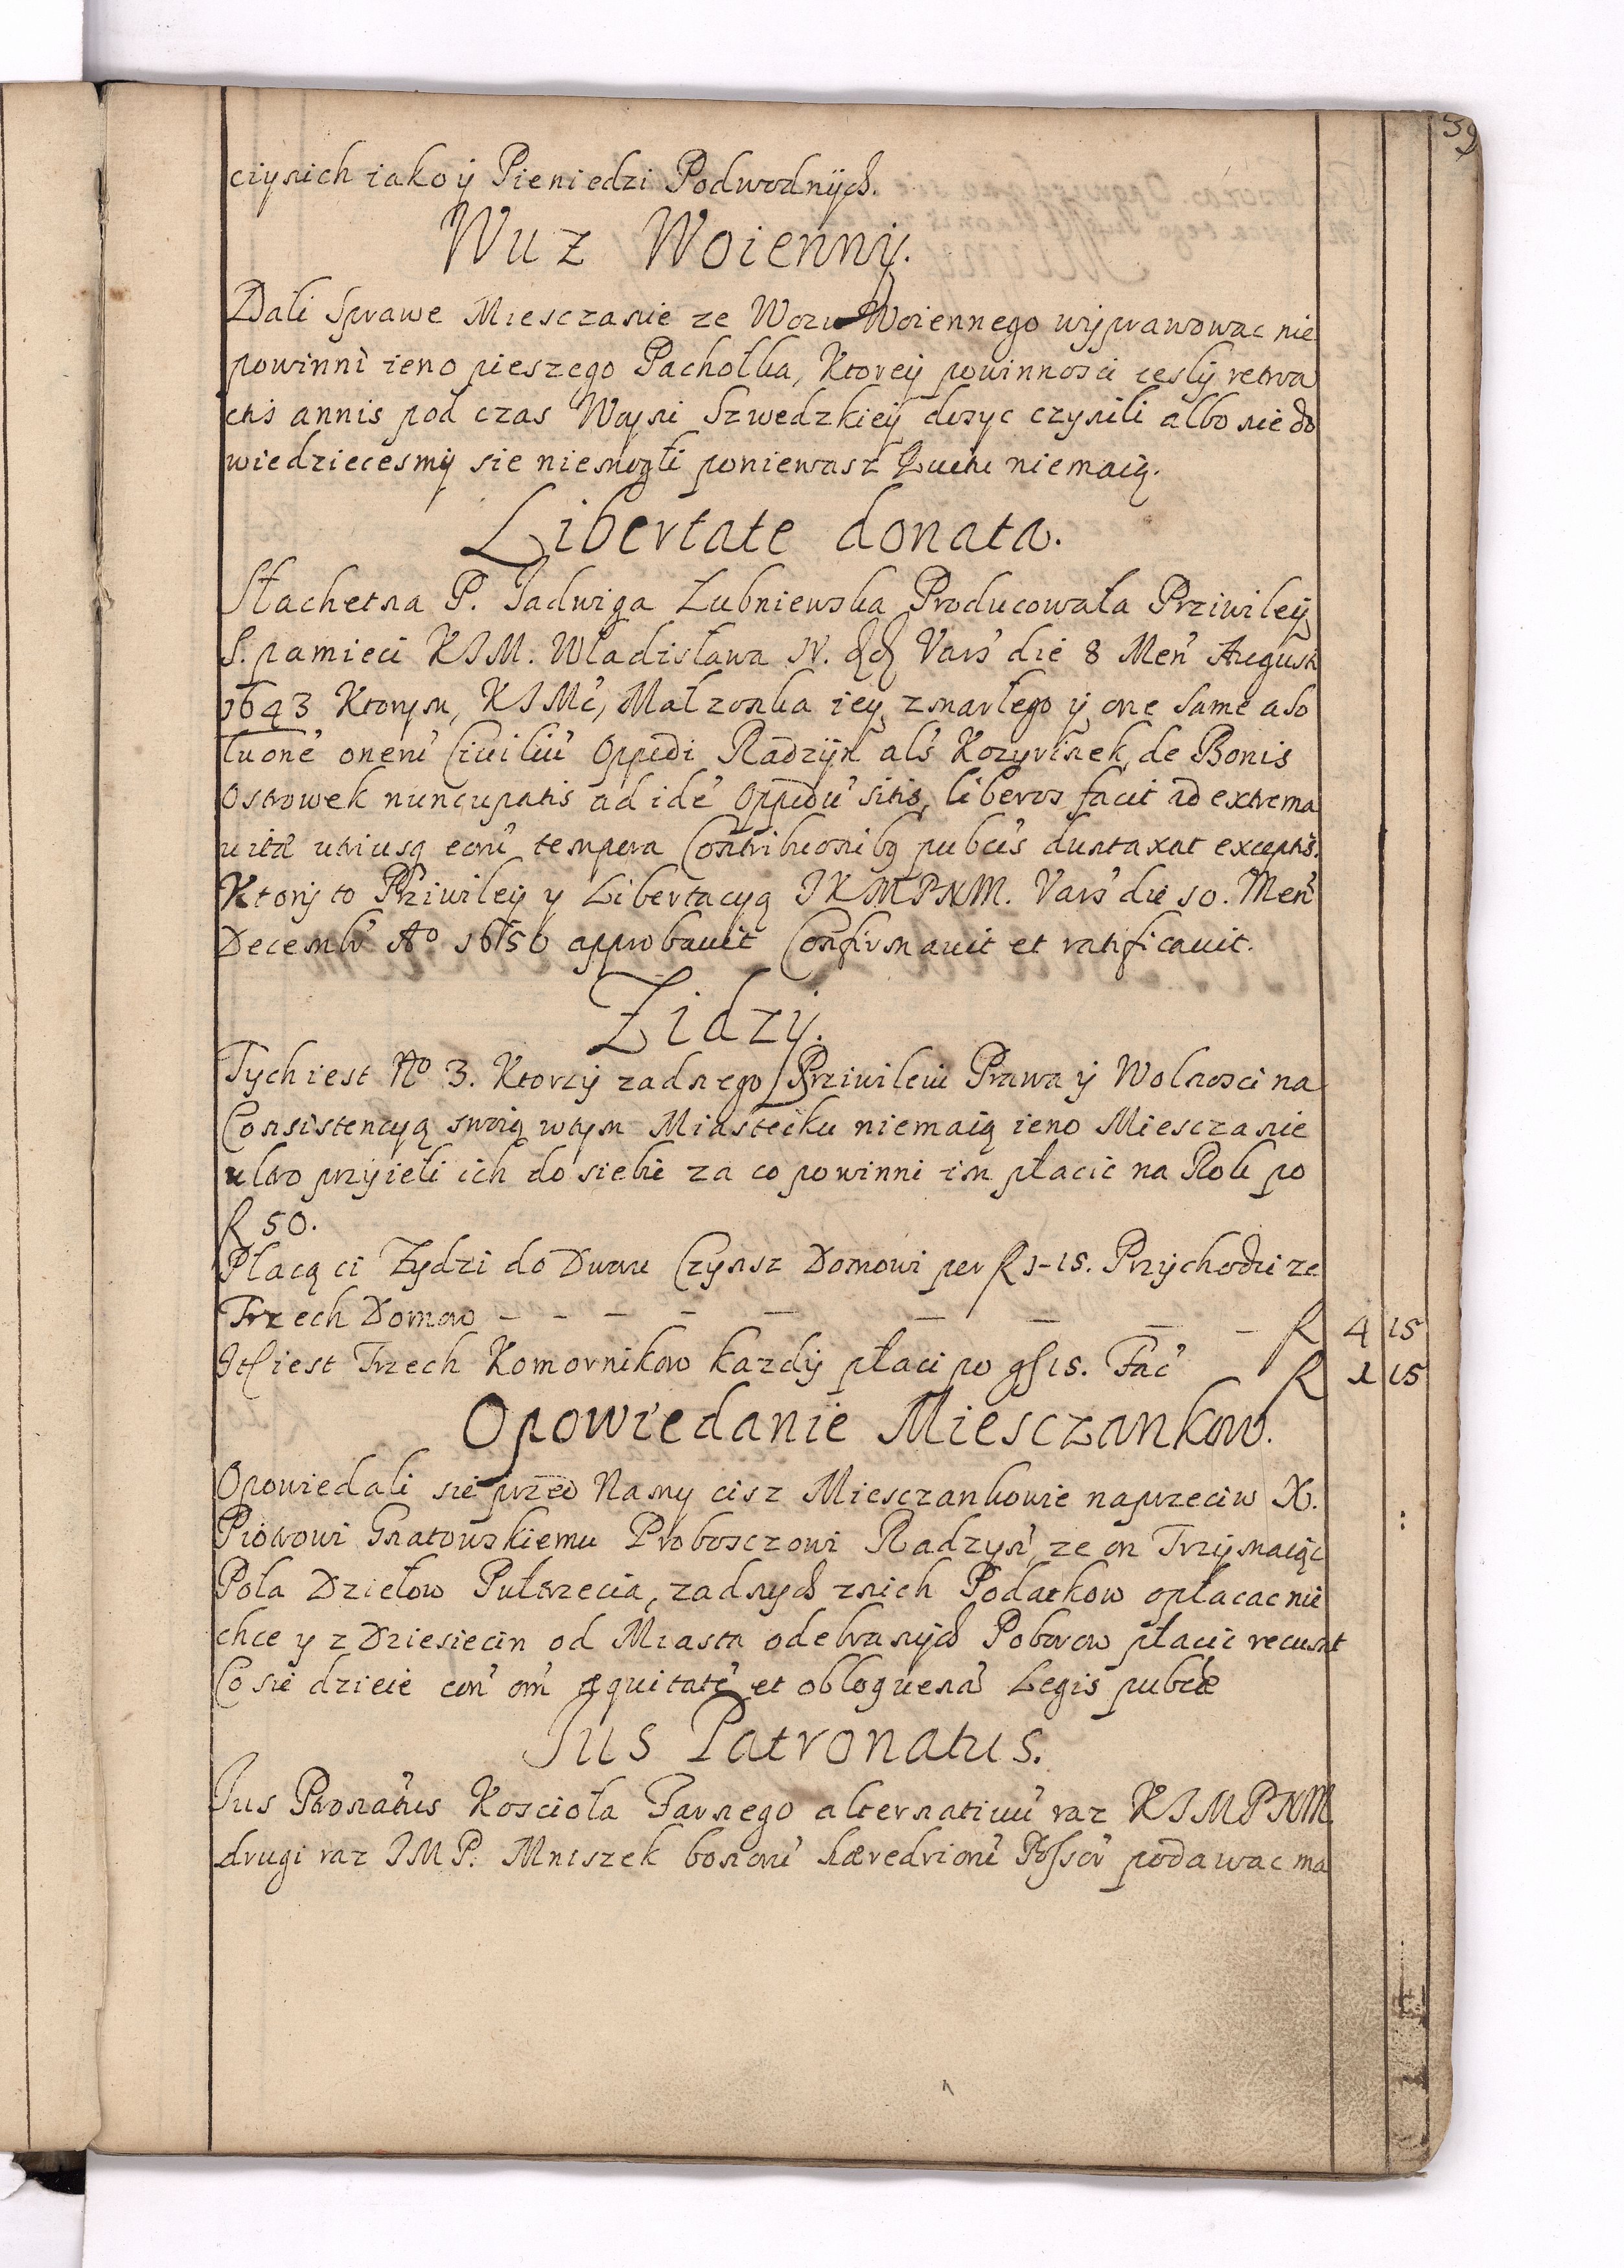 39
ciynich iako ÿ Pieniedzi Podwodnÿch.
Wuz Woiennÿ.
Dali Sprawe Miesczanie ze Wozu Woiennego wÿprawowac nie
powinni ieno pieszego Pachołka, Ktoreÿ powinnosci ieslÿ retroa
ctis annis pod czas Woyni Szwedzkieÿ dosyc czynili albo nie do
wiedziecesmÿ sie niemogli poniewasz niemaią.
Libertate donata.
Słachetna P. Jadwiga Łubniewska Producowała Priwileÿ
S. pamieci KIM. Władisława IV. Vars' die 8 Men' Augusti
1643 Ktorym, KIMć, Małzonka ieÿ zmarłego ÿ one same abo
luone' onerū Civiliū Oppidi Radzÿn als' Kozyrinek de Bonis
Ostrowek nuncupatis ad ide' Oppidū sitis, liberos facit ad extrema
vitæ utriusq eorū tempora Contribuonibq publis duntaxat exceptis.
Ktorÿ to Priwileÿ y Libertacyą JKMPNM. Vars' die 10. Men'
Decembr' Aº 1650 approbavit Confirmavit et ratificavit.
Zidzÿ.
Tych iest Nº 3. Ktorzÿ zadnego Priwileiu Prawa ÿ Wolnosci na
Consistencyą swoią wtym Miasteciku niemaią ieno Miesczanie
ultro przÿieli ich do siebie za co powinni im płacic na Rok po
f 50.
Płacą ci Zydzi do Dworu Czynsz Domowi per f 1-15. Przÿchodzi ze
Trzech Domow - - - - - - - - f 4 15
Itḿ iest Trzech Komornikow kazdÿ płaci po gś 15. Fać f 1 15
Opowiedanie Miesczankow.
Opowiedali sie przed Namy cisz Miesczankowie naprzeciw X.
Piotrowi Gnatowskiemu Proboszczowi Radzyń, ze on Trzÿmaiąc
Pola Dziełow Pułtrzecia, zadnych znich Podatkow opłacac nie
chce y z Dziesiecin od Miasta odebranÿch Poborow płacic recusat
Co sie dzieie con' om' æquitate' et obloquena' Legis publcæ
Jus Patronatus.
Jus Ptronatus Koscioła Farnego alternativū raz KIMPNM.
drugi raz IMP. Mniszek bonorū hæredriorū Possor' podawac ma